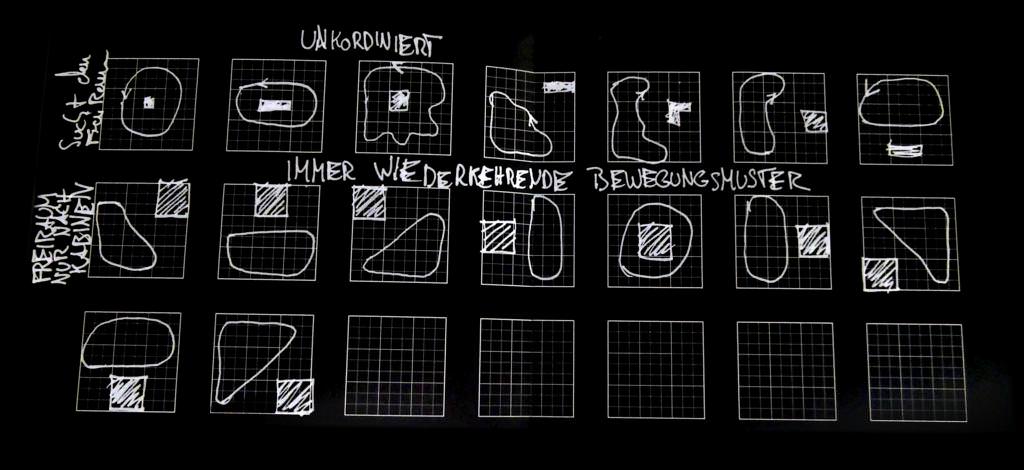 UNKORDINIERT
Sucht den
Frei Raum
IMMER WIEDERKEHRENDE BEWEGUNGSMUSTER
FREIRAUM
NUR NACH
KABINEN